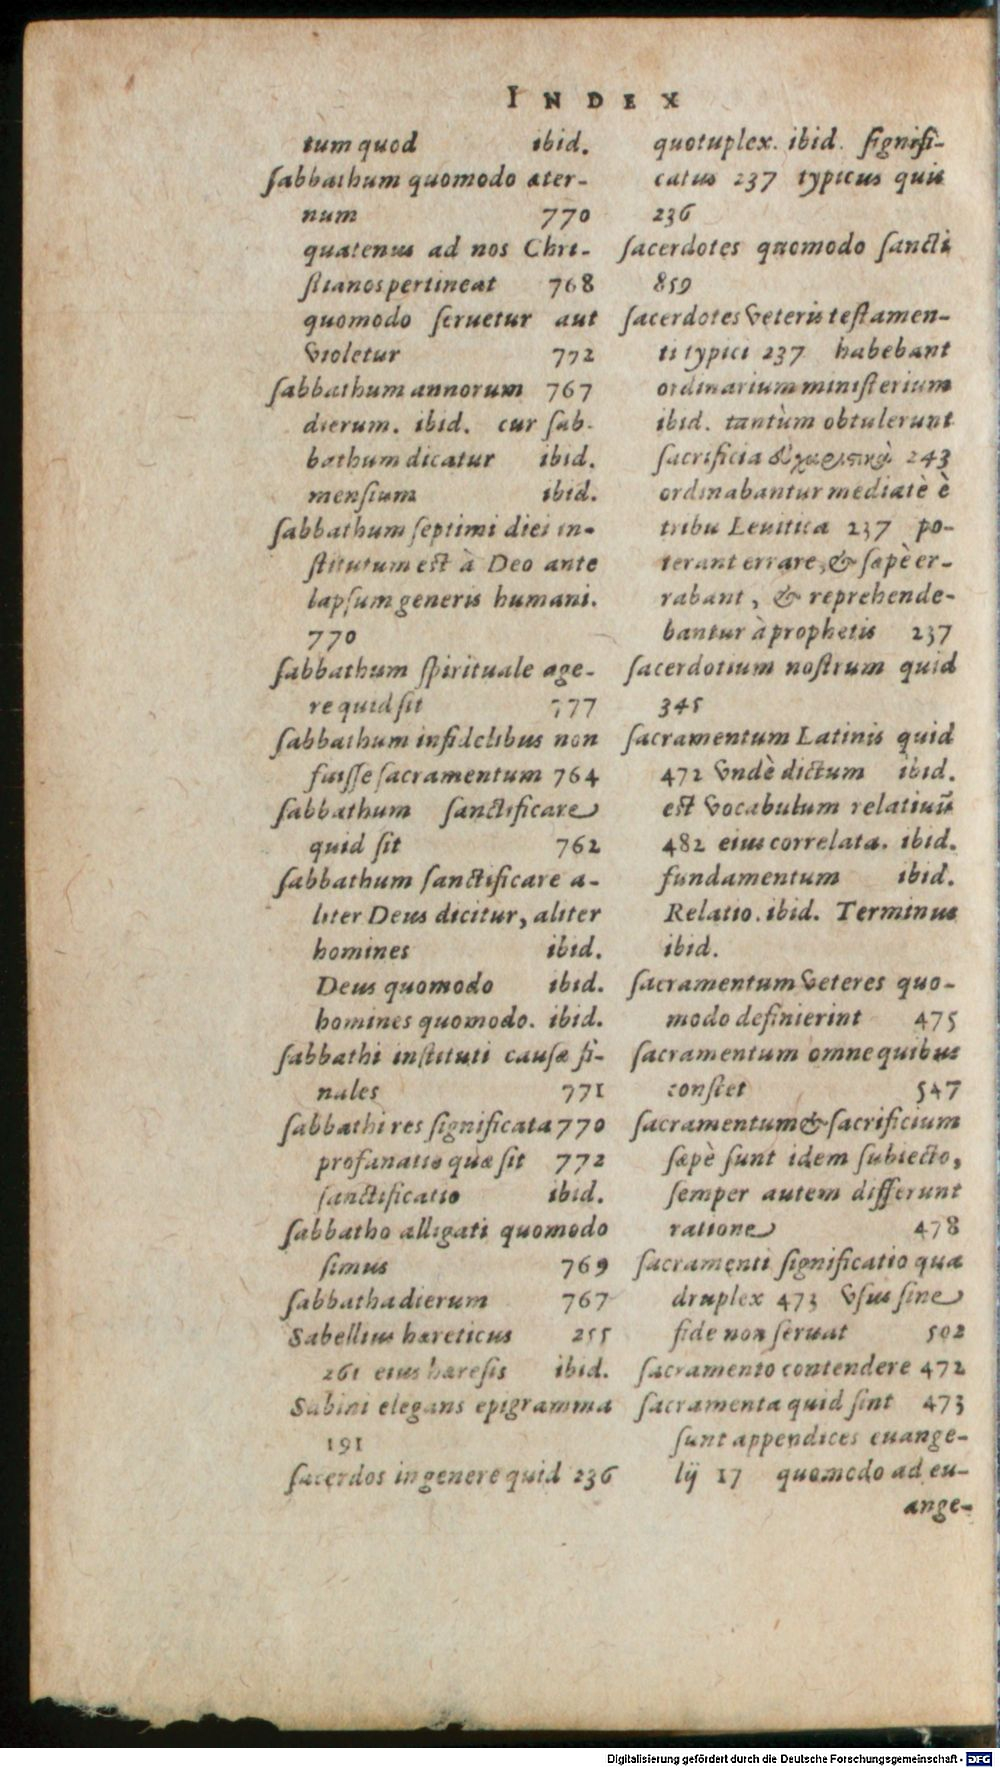 INDEX
tum quod ibid.
ſabbathum quomodo æter-
num 770
quatenus ad nos Chri-
ſtianos pertineat 768
quomodo ſeruetur aut
violetur 772
ſabbathum annorum 767
dierum. ibid. cur ſab-
bathum dicatur ibid.
menſium ibid.
ſabbathum ſeptimi diei in-
ſtitutum est à Deo ante
lapſum generis humani.
770
ſabbathum ſpirituale age-
re quid ſit 777
ſabbathum infidelibus non
fuiſſe ſacramentum 764
ſabbathum ſanctificare
quid ſit 762
ſabbathum ſanctificare a-
liter Deus dicitur, aliter
homines ibid.
Deus quomodo ibid.
homines quomodo. ibid.
ſabbathi inſtituti cauſæ fi-
nales 771
ſabbathi res ſignificata 770
profanatio quæ ſit 772
ſanctificatio ibid.
ſabbatho alligati quomodo
ſimus 769
ſabbatha dierum 767
Sabellius hæreticus 255
261 eius hæreſis ibid.
Sabini elegans epigramma
191
ſacerdos in genere quid 236
quotuplex. ibid. ſignifi-
catus 237 typicus quis
236
ſacerdotes quomodo ſancti
859
ſacerdotes veteris teſtamen-
ti typici 237 habebant
ordinarium miniſterium
ibid. tantùm obtulerunt
ſacrificia εὐχαριστικά 243
ordinabantur mediatè è
tribu Leuitica 237 po-
terant errare, & ſæpè er-
rabant, & reprehende-
bantur à prophetis 237
ſacerdotium noſtrum quid
345
ſacramentum Latinis quid
472 vndè dictum ibid.
est vocabulum relatiuū
482 eius correlata. ibid.
fundamentum ibid.
Relatio. ibid. Terminus
ibid.
ſacramentum veteres quo-
modo definierint 475
ſacramentum omne quibus
conſtet 547
ſacramentum & ſacrificium
ſæpè ſunt idem ſubiecto,
ſemper autem differunt
ratione 478
ſacramenti ſignificatio qua
druplex 473 vſus ſine
fide non ſeruat 502
ſacramento contendere 472
ſacramenta quid ſint 473
ſunt appendices euange-
lij 17 quomodo ad eu-
ange-
Digitalisierung gefördert durch die Deutsche Forschungsgemeinschaft - DFG